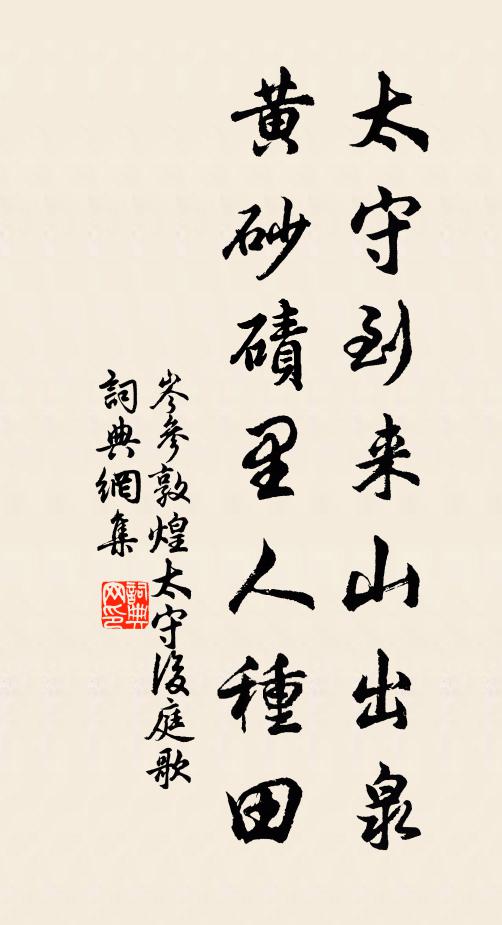 太守到来山出泉
黄砂磧里人種田
岑參敦煌太守後庭歌
詞典網集
詞典網印